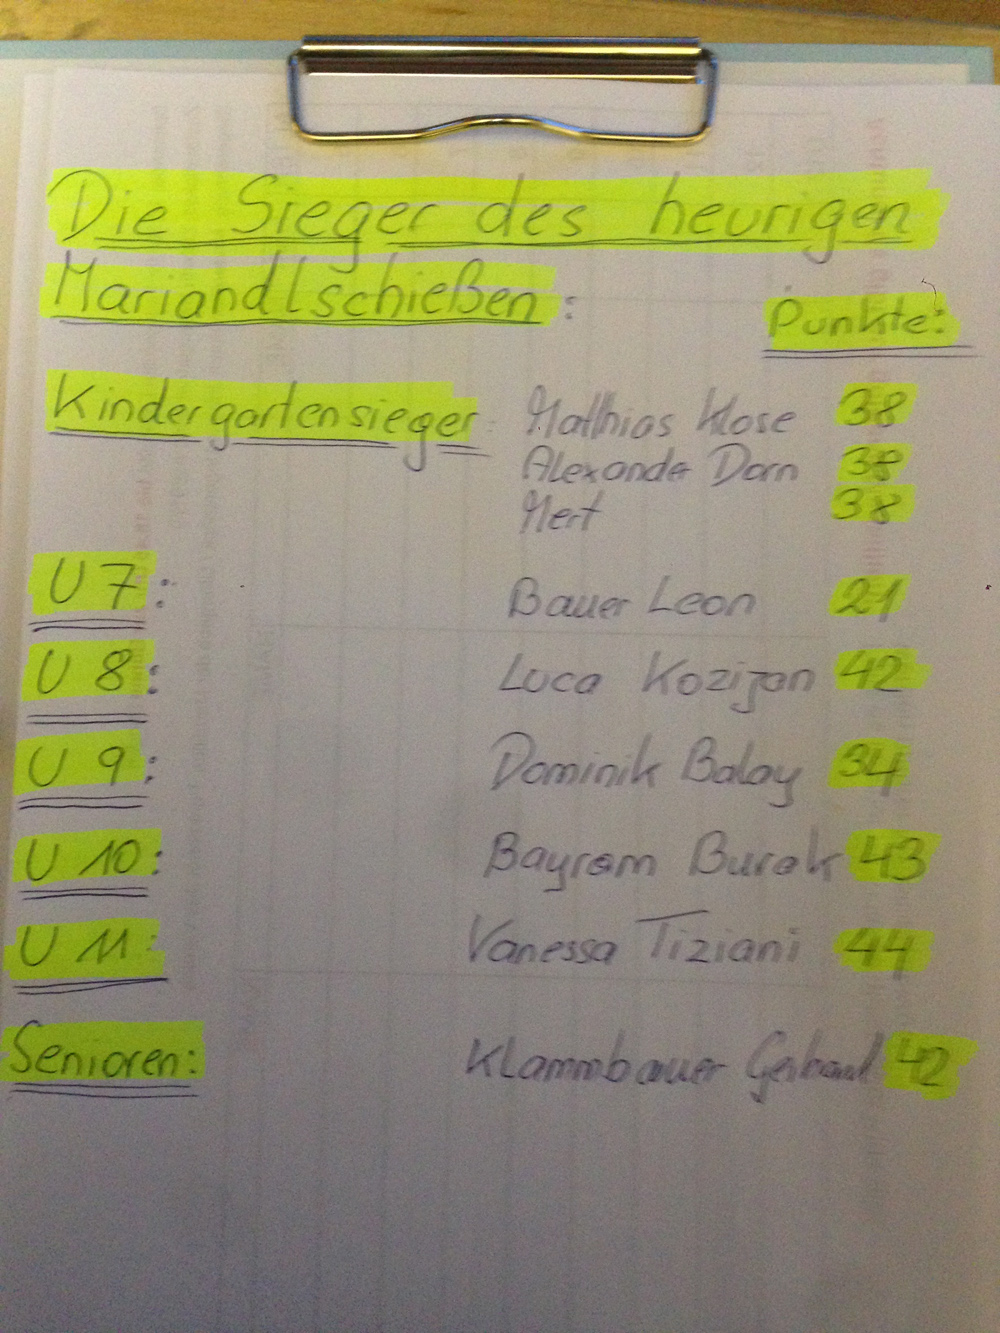 Die Sieger des heurigen
Mariandlschießen:
Punkte:
Kindergartensieger: Matthias Klose 38
Alexander Dorn 38
Mert 38
U 7: Bauer Leon 21
U 8: Luca Kozijan 42
U 9: Dominik Balay 34
U 10: Bayram Burak 43
U 11: Vanessa Tiziani 44
Senioren: Klammbauer Gerhard 42